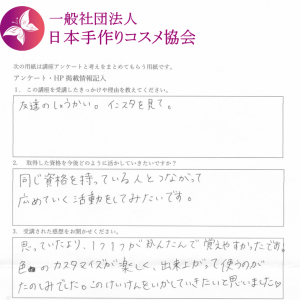 一般社団法人
日本手作りコスメ協会
次の用紙は講座アンケートと考えをまとめてもらう用紙です。
アンケート・HP掲載情報記入
1. この講座を受講したきっかけや理由を教えてください。
友達のしょうかい。インスタを見て。
2. 取得した資格を今後どのように活かしていきたいですか?
同じ資格を持っている人とつながって
広めていく活動をしてみたいです。
3. 受講された感想をお聞かせください。
思っていたより、1つ1つがかんたんで覚えやすかったです。
色のカスタマイズが楽しく、出来上がって使うのが
たのしみでした。このけいけんをいかしていきたいと思いました♡